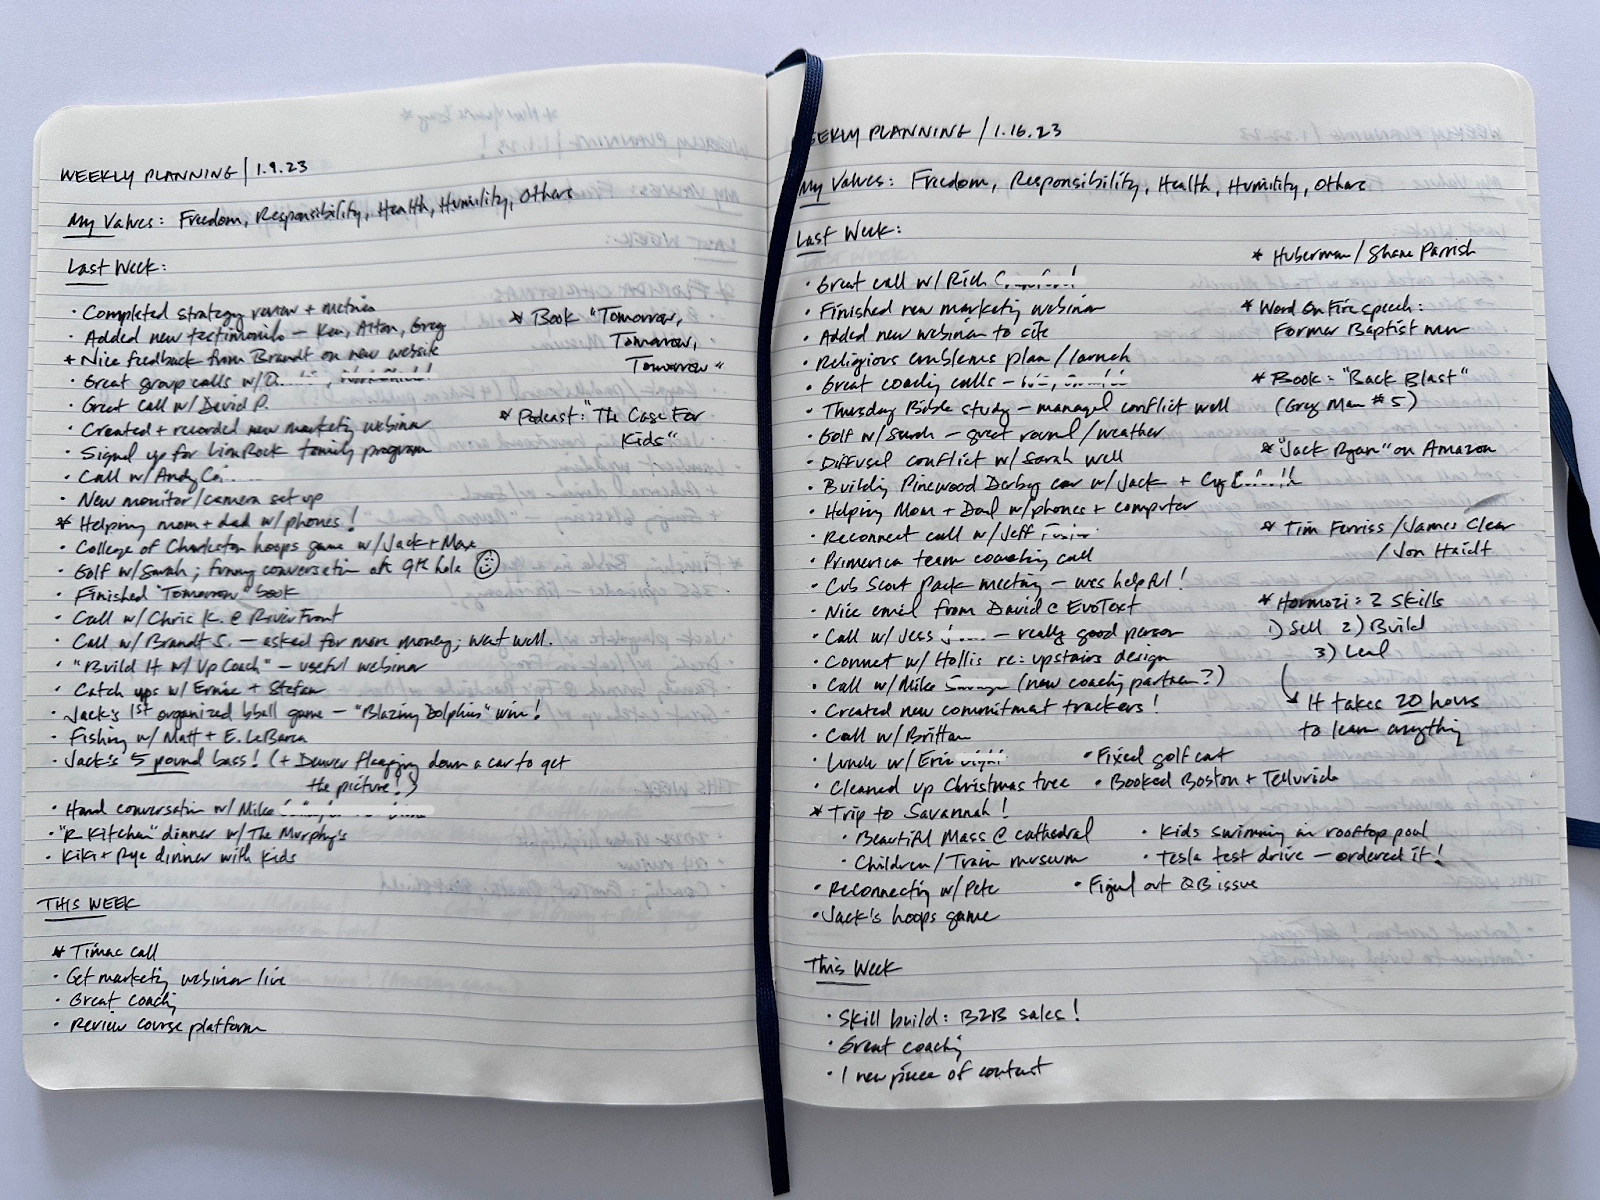 WEEKLY PLANNING | 1.9.23
My Values: Freedom, Responsibility, Health, Humility, Others
Last Week:
· Completed strategy review + metrics
· Added new testimonials – Ken, Alton, Greg
* Nice feedback from Brandt on new website
· Great group calls w/
· Great call w/ David P.
· Created + recorded new marketing webinar
· Signed up for LionRock family program
· Call w/ Andy
· New monitor/camera set up
* Helping mom + dad w/ phones!
· College of Charleston hoops game w/ Jack + Max
· Golf w/ Sarah; funny conversation at 9th hole ☺
· Finished "Tomorrow" book
· Call w/ Chris K. @ RiverFront
· Call w/ Brandt S. – asked for more money; went well.
· "Build It w/ Up Coach" – useful webinar
· Catch ups w/ Ernie + Stefan
· Jack's 1st organized bball game – "Blazing Dolphins" win!
· Fishing w/ Matt + E. LeBarca
· Jack's 5 pound bass! (+ Denver flagging down a car to get
the picture!)
· Hard conversation w/ Mike
· "R Kitchen" dinner w/ The Murphy's
· Kiki + Rye dinner with kids
* Book "Tomorrow,
Tomorrow,
Tomorrow"
* Podcast: "The Case For
Kids"
THIS WEEK
* Timac call
· Get marketing webinar live
· Great coaching
· Review course platform
WEEKLY PLANNING / 1.16.23
My Values: Freedom, Responsibility, Health, Humility, Others
Last Week:
· Great call w/ Rich
· Finished new marketing webinar
· Added new webinar to site
· Religious emblems plan / launch
· Great coaching calls –
· Thursday Bible study – managed conflict well
· Golf w/ Sarah – great round / weather
· Diffused conflict w/ Sarah well
· Building Pinewood Derby car w/ Jack +
· Helping Mom + Dad w/ phones + computer
· Reconnect call w/ Jeff
· Primerica team coaching call
· Cub Scout Pack meeting – was helpful!
· Nice email from David @ EvoText
· Call w/ Jess – really good person
· Connect w/ Hollis re: upstairs design
· Call w/ Mike (new coaching partner?)
· Created new commitment trackers!
· Call w/ Brittan
· Lunch w/ Eric
· Fixed golf cart
· Cleaned up Christmas tree
· Booked Boston + Telluride
* Trip to Savannah!
· Beautiful Mass @ cathedral
· Kids swimming in rooftop pool
· Children / Train museum
· Tesla test drive – ordered it!
· Reconnecting w/ Pete
· Figured out QB issue
· Jack's hoops game
* Huberman / Shane Parrish
* Word On Fire speech:
Former Baptist
* Book: "Back Blast"
(Grey Man #5)
* "Jack Ryan" on Amazon
* Tim Ferriss / James Clear
/ Jon Haidt
* Hormozi: 3 Skills
1) Sell 2) Build
3) Lead
↳ It takes 20 hours
to learn anything
This Week
· Skill build: B2B sales!
· Great coaching
· 1 new piece of content